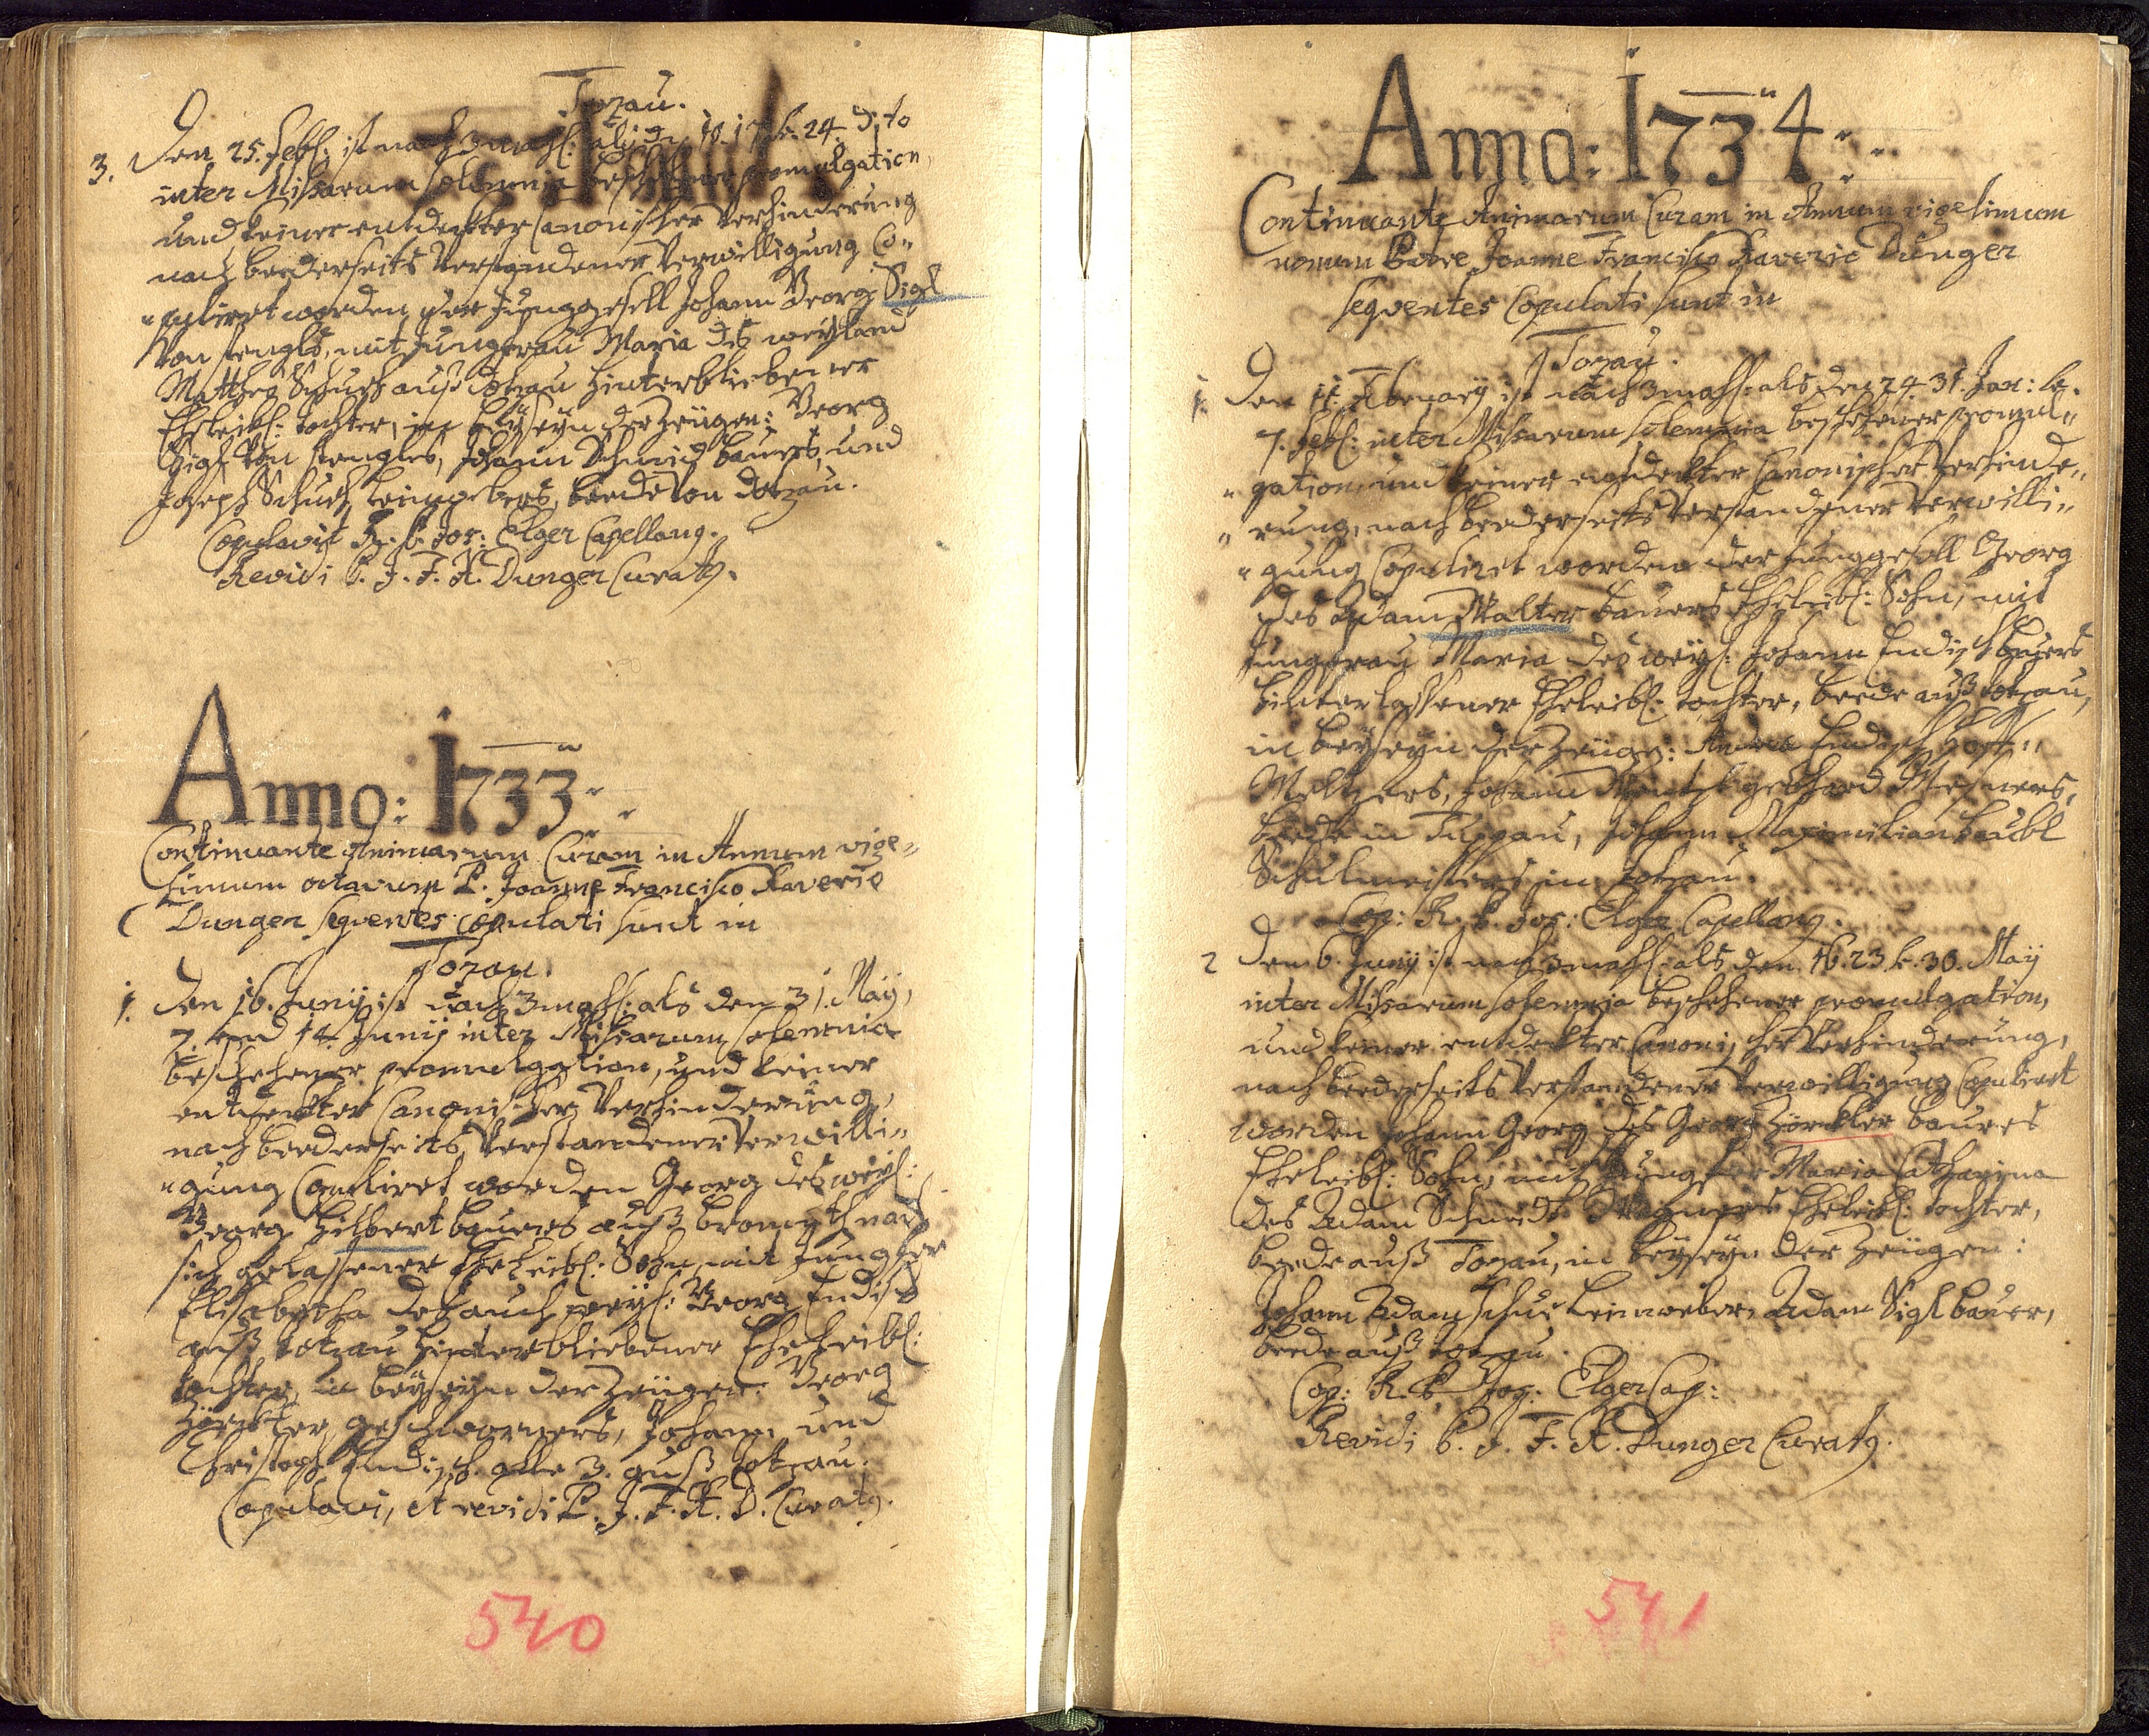 Tozau.
3. Den 25. Feb: ist nach 3 mahl: als den 10. 17. & 24. dito
inter Missarum solemnia beschehener promulgation,
und keiner entdekter Canonischer Verhinderung
nach beederseits Verstandener Verwilligung Co"
"puliret worden der Junggesell Johann Georg Sigl
Von stengles, mit Jungfrau Maria des weyland
Matthes Schuch auß Totzau hinterbliebener
Eheleibl: tochter, in beyseyn der Zeügen: Georg
Sigl Von stengles, Johann Schmid bauers, und
Joseph Schuch leinwebers, beede Von dotzau.
Copulavit R. P. Jos: Elger Capellang.
Revidi P. J. F. X. Dunger Curatg.
Anno: 1733
Continuante Animarum Curam in Annum vige"
simum octavum P. Joanne Francisco Xaverio
Dunger sequentes copulati sunt in
Tozau.
1. Den 16. Junij ist nach 3 mahl: als den 31. May,
7. und 14. Junij inter Missarum solemnia
beschehener promulgation, und keiner
entdekter Canonischer Verhinderung,
nach beederseits Verstandener Verwilli"
"gung Copuliret worden Georg des weyl:
Georg Hilbert bauers auß nach
sich gelassener Eheleibl: Sohn, mit Jungfer
Elisabetha des auch weyl: Georg Endisch
auß totzau hinterbliebener Eheleibl:
tochter, in beyseyn der Zeügen: Georg
Zörkler geschworners, Johann und
Christoph Endisch alle 3. auß totzau.
Copulavi, et revidi P. J. F. X. D. Curatg.
540
Anno: 1734
Continuante Animarum Curam in Annum vigesimum
nonum Patre Joanne Francisco Xaverio Dunger
sequentes Copulati sunt in
Tozau.
1. Den 11. Februarij ist nach 3 mahl: als den 24. 31. Jan: &
7. Feb: inter Missarum solemnia beschehener promul"
"gation, und keiner endekter Canonischer Verhinde"
"rung, nach beederseits Verstandener Verwilli"
"gung Copuliret worden der Junggesell Georg
des Adam Walter bauers Eheleibl: Sohn, mit
Jungfrau Maria des weyl: Johann Endisch bauers
hinterlassener Eheleibl: tochter, beede auß totzau,
in beyseyn der Zeügen: Andrea Endisch
Meltzers, Johann
beede in Tuppau, Johann Maximilian
Schulmeisters in totzau.
Cop: R. P. Jos: Elger Capellang.
2 Den 6. Junij ist nach 3 mahl: als den 16. 23. & 30. May
inter Missarum solemnia beschehener promulgation,
und keiner entdekter Canonischer Verhinderung,
nach beederseits Verstandener Verwilligung Copuliret
worden Johann Georg des Georg Zörkler bauers
Eheleibl: Sohn, mit Jungfer Maria Catharina
des Adam Schmidt Wagners Eheleibl: tochter,
beede auß Tozau, in beyseyn der Zeügen:
Johann Adam Schuch leinweber, Adam Sigl bauer,
beede auß totzau.
Cop: R. P. Jos: Elger Cap:
Revidi P. J. F. X. Dunger Curatg.
541